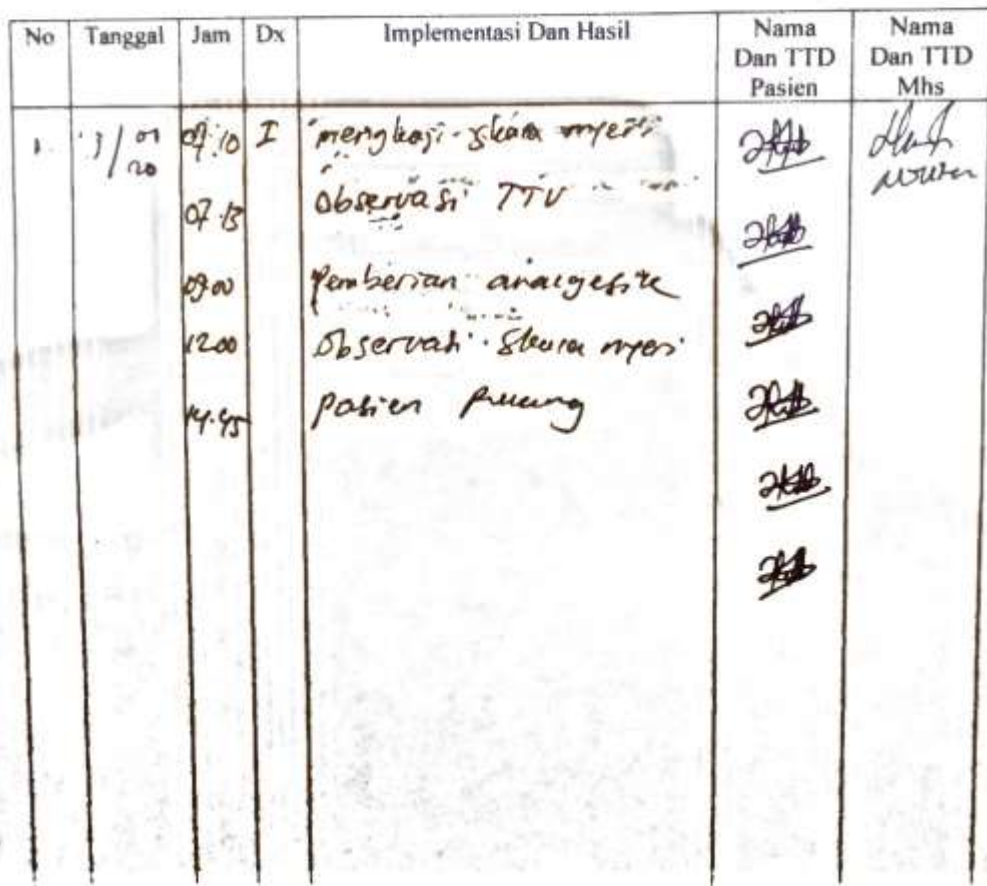 No Tanggal Jam Dx Implementasi Dan Hasil Nama Dan TTD Pasien Nama Dan TTD Mhs
07.10 I mengkaji skala nyeri
07.13 Observasi TTV
09.00 Pemberian analgesik
12.00 Observasi skala nyeri
14.45 pasien pulang